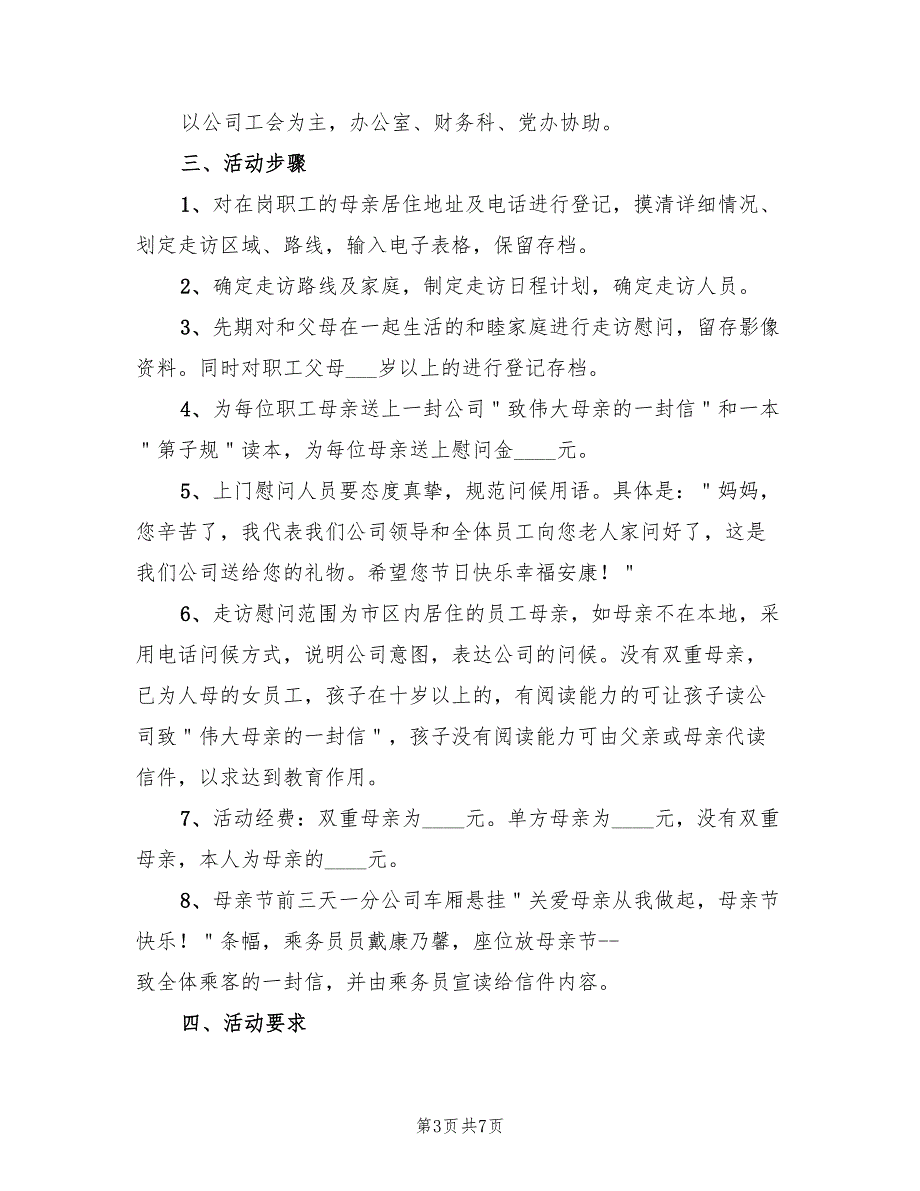 以公司工会为主，办公室、财务科、党办协助。
三、活动步骤
1、对在岗职工的母亲居住地址及电话进行登记，摸清详细情况、
划定走访区域、路线，输入电子表格，保留存档。
2、确定走访路线及家庭，制定走访日程计划，确定走访人员。
3、先期对和父母在一起生活的和睦家庭进行走访慰问，留存影像
资料。同时对职工父母___岁以上的进行登记存档。
4、为每位职工母亲送上一封公司＂致伟大母亲的一封信＂和一本
＂第子规＂读本，为每位母亲送上慰问金____元。
5、上门慰问人员要态度真挚，规范问候用语。具体是：＂妈妈，
您辛苦了，我代表我们公司领导和全体员工向您老人家问好了，这是
我们公司送给您的礼物。希望您节日快乐幸福安康！＂
6、走访慰问范围为市区内居住的员工母亲，如母亲不在本地，采
用电话问候方式，说明公司意图，表达公司的问候。没有双重母亲，
已为人母的女员工，孩子在十岁以上的，有阅读能力的可让孩子读公
司致＂伟大母亲的一封信＂，孩子没有阅读能力可由父亲或母亲代读
信件，以求达到教育作用。
7、活动经费：双重母亲为____元。单方母亲为____元，没有双重
母亲，本人为母亲的____元。
8、母亲节前三天一分公司车厢悬挂＂关爱母亲从我做起，母亲节
快乐！＂条幅，乘务员员戴康乃馨，座位放母亲节--
致全体乘客的一封信，并由乘务员宣读给信件内容。
四、活动要求
第3页共7页